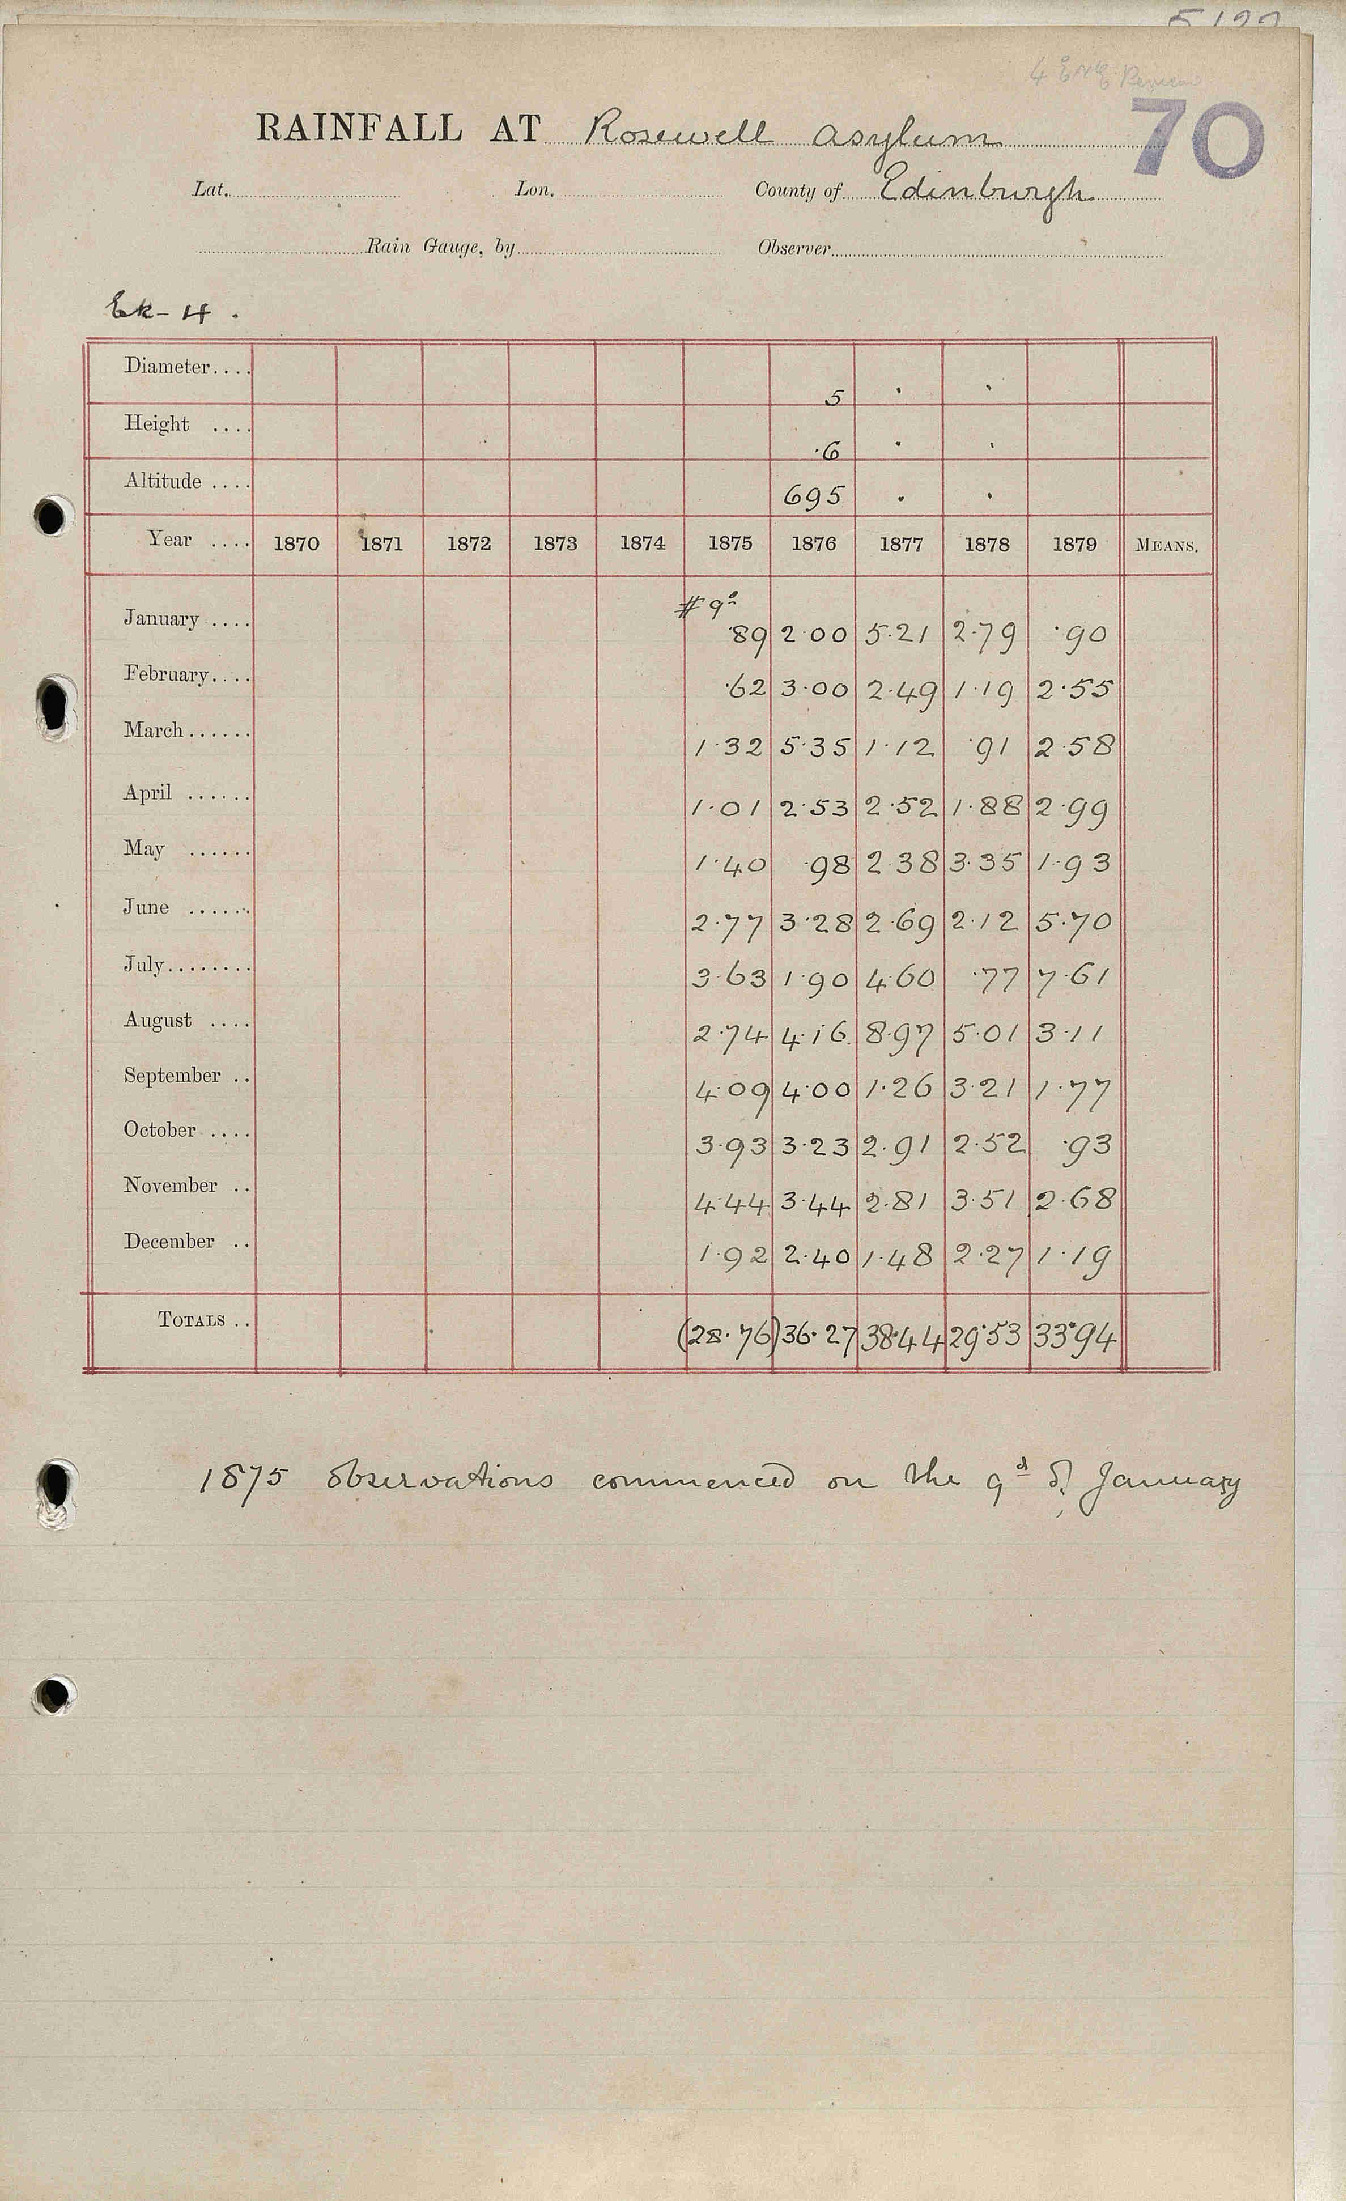 RAINFALL AT Rosewell Asylum 70
Lat. Lon. County of Edinburgh
Rain Gauge, by Observer
Ek-4.
Diameter.... 5 " "
Height .... .6 " "
Altitude .... 695 " "
Year .... 1870 1871 1872 1873 1874 1875 1876 1877 1878 1879 MEANS.
# 9d
January .... .89 2.00 5.21 2.79 .90
February.... .62 3.00 2.49 1.19 2.55
March...... 1.32 5.35 1.12 .91 2.58
April ...... 1.01 2.53 2.52 1.88 2.99
May ...... 1.40 .98 2.38 3.35 1.93
June ...... 2.77 3.28 2.69 2.12 5.70
July........ 3.63 1.90 4.60 .77 7.61
August .... 2.74 4.16 8.97 5.01 3.11
September .. 4.09 4.00 1.26 3.21 1.77
October .... 3.93 3.23 2.91 2.52 .93
November .. 4.44 3.44 2.81 3.51 2.68
December .. 1.92 2.40 1.48 2.27 1.19
TOTALS .. (28.76) 36.27 38.44 29.53 33.94
1875 observations commenced on the 9d of January